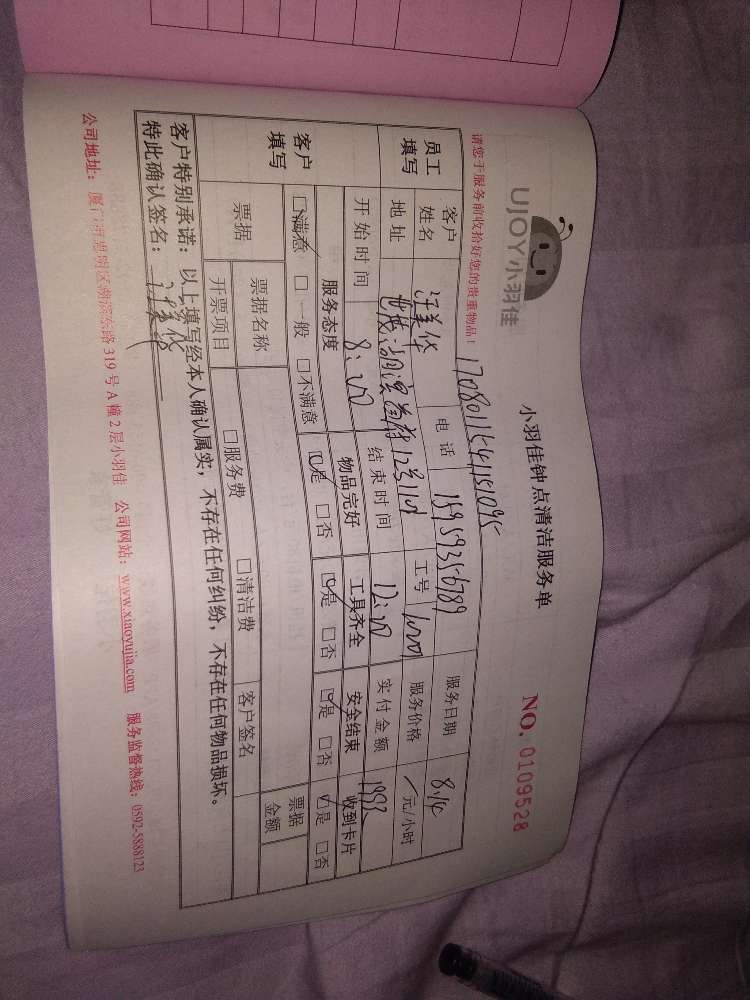 UJOY小羽佳
小羽佳钟点清洁服务单
NO. 0109528
请您于服务前收拾好您的贵重物品!
1708011541151095
员工填写 客户姓名 汪美华 电话 15959356789 服务日期
地址 12号 工号 服务价格 元/小时
开始时间 8:00 结束时间 12:00 实付金额
客户填写 服务态度 物品完好 工具齐全 安全结束 收到卡片
□满意 □一般 □不满意 □是 □否 □是 □否 □是 □否 □是 □否
票据 票据名称 票据金额
开票项目 □服务费 □清洁费 客户签名
客户特别承诺:以上填写经本人确认属实,不存在任何纠纷,不存在任何物品损坏。
特此确认签名: 汪美华
公司地址:厦门市思明区湖滨东路319号A幢2层小羽佳 公司网站:www.xiaoyujia.com 服务监督热线:0592-5888123